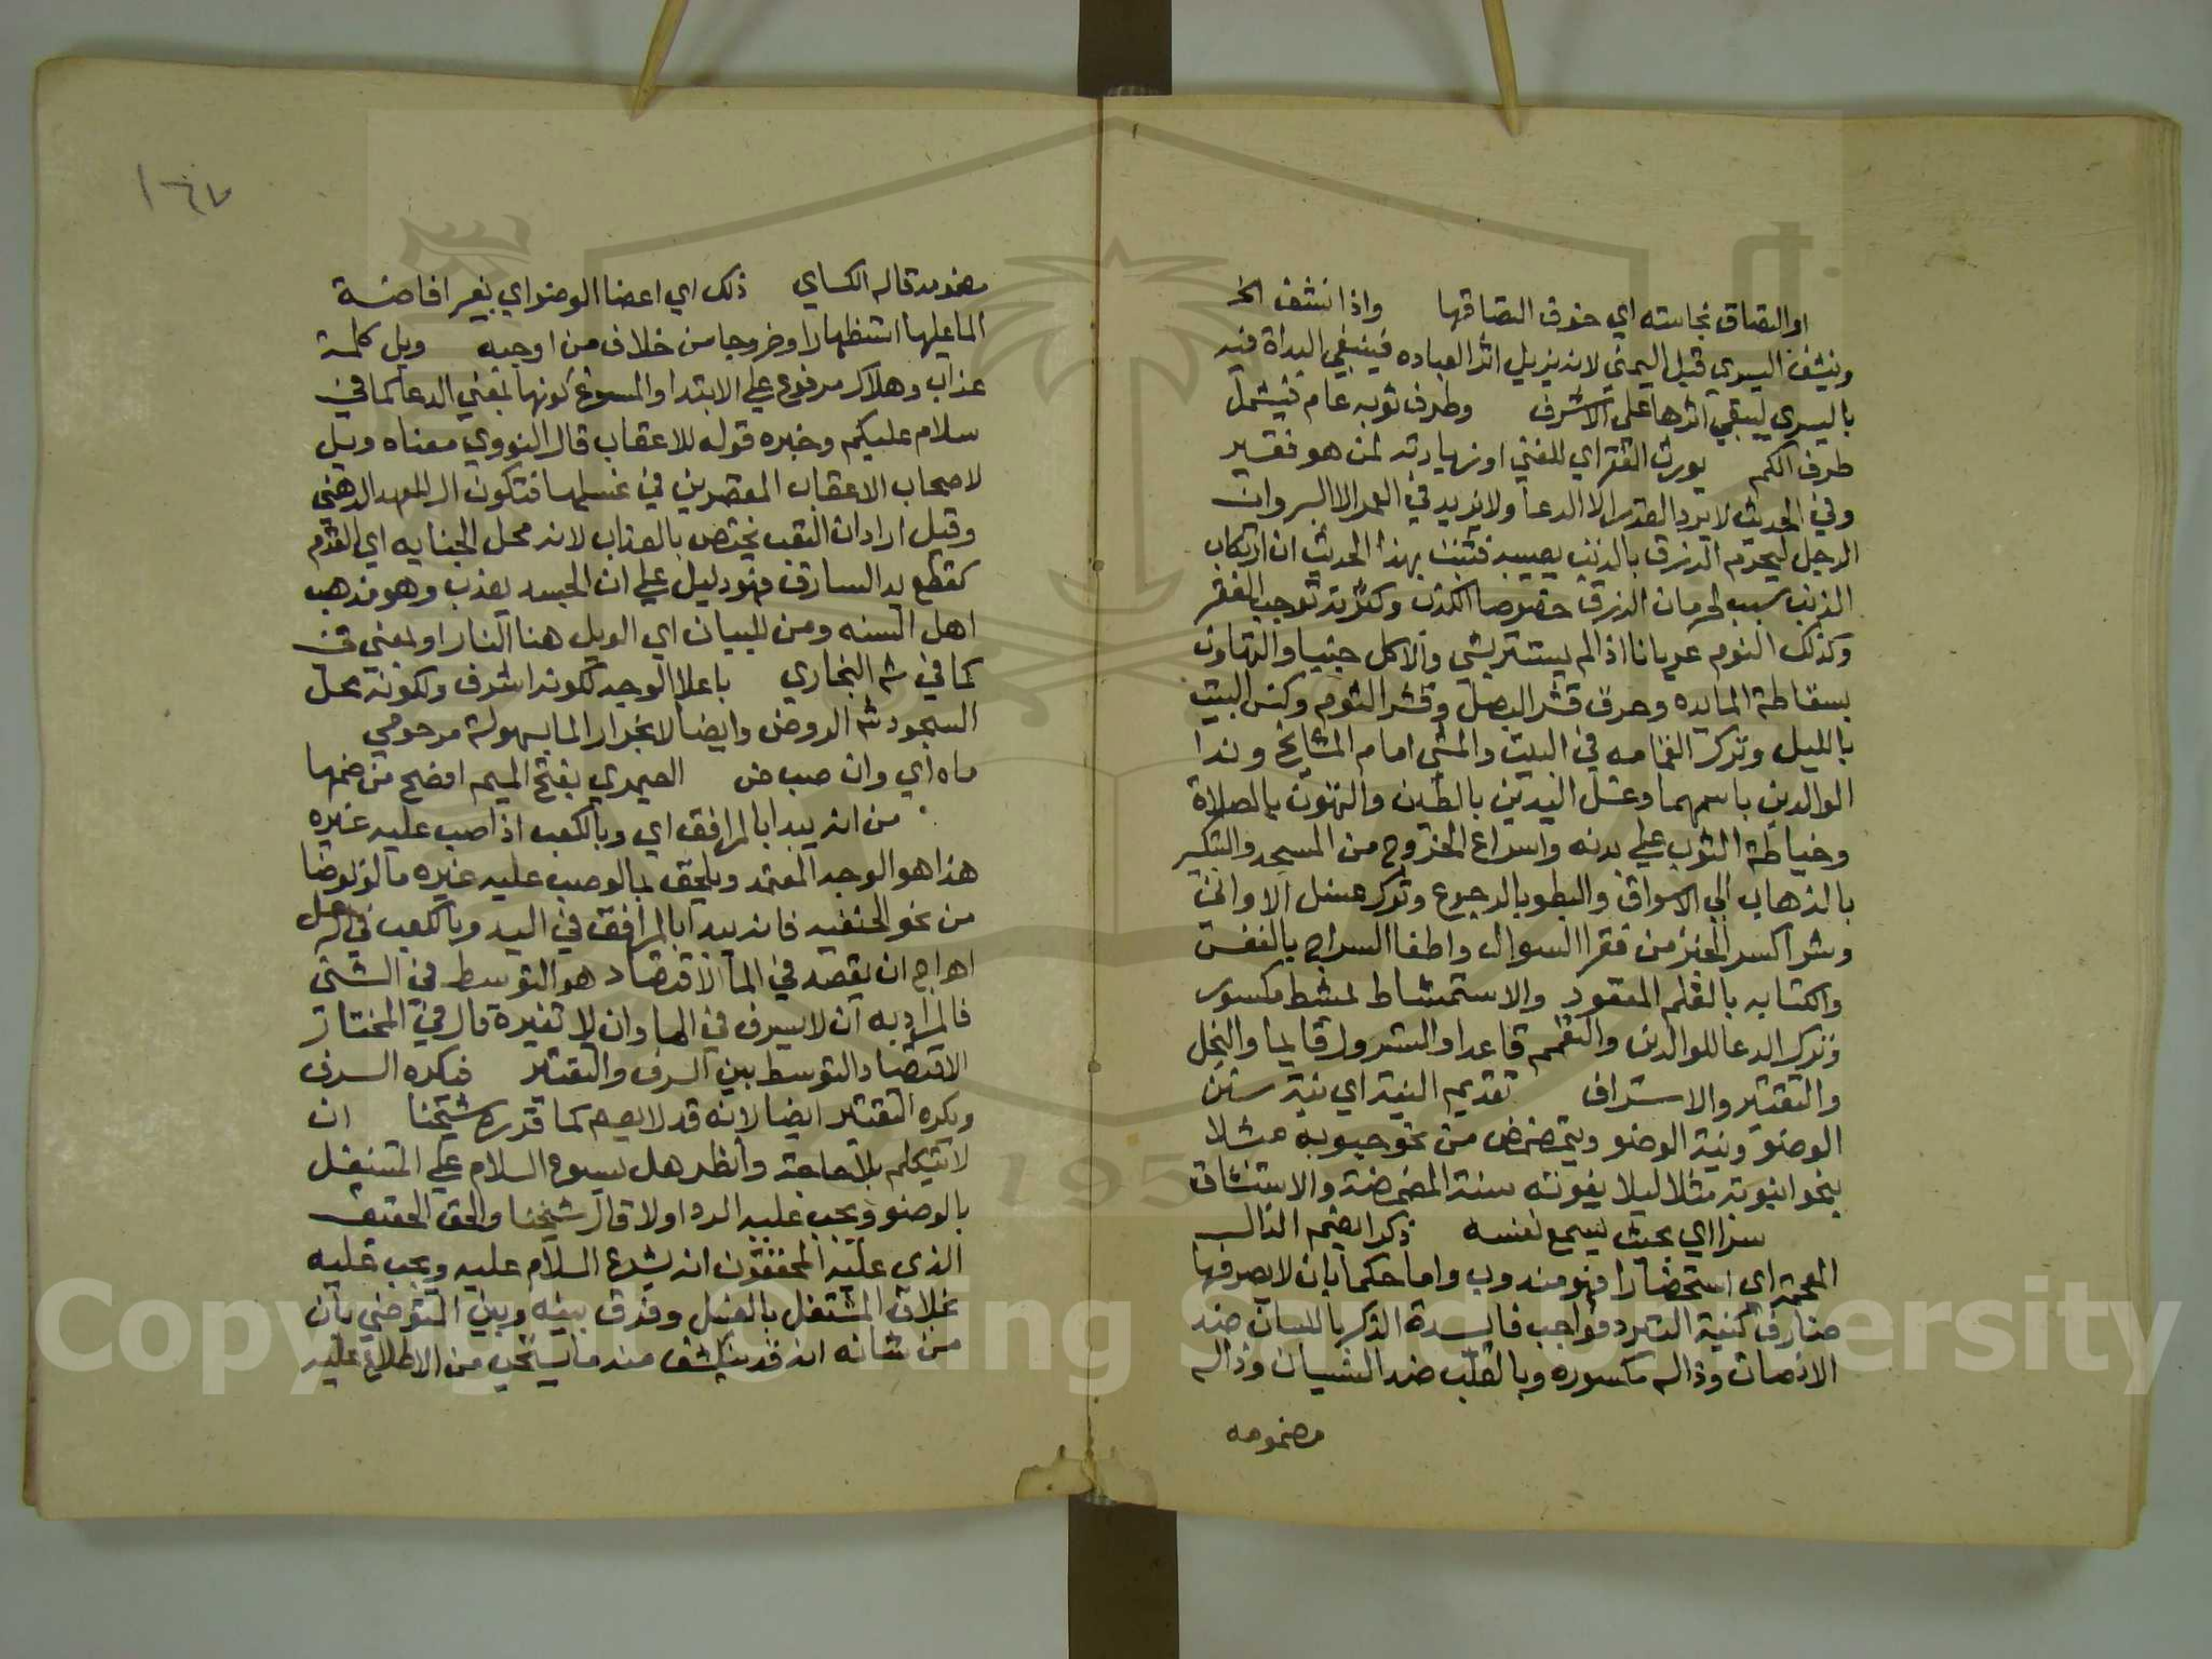 او التصاق نجاسته اي خوف التصاقها واذا نشف الخ
وينشف اليسري قبل اليمني لانه يزيل اثر العباده فينبغي البداة فيه
باليسري ليبقي اثرها علي الاشرف وطرف ثوبه عام فيشمل
طرف الكم يورث الفقر اي للغني او زيادته لمن هو فقير
وفي الحديث لا يرد القدر الا الدعا ولا يزيد في العمر الا البر وان
الرجل ليحرم الرزق بالذنب يصيبه فثبت بهذا الحديث ان ارتكاب
الذنب سبب لحرمان الرزق خصوصا الكذب وكثرته توجب الفقر
وكذلك النوم عريانا اذا لم يستتر بشي والاكل جنبا والتهاون
بسقاطة المايده وحرق قشر البصل وقشر الثوم وكنس البيت
بالليل وترك القمامه في البيت والمشي امام المشايخ وندا
الوالدين باسمهما وغسل اليدين بالطين والتهون بالصلاة
وخياطة الثوب علي بدنه واسراع الخروج من المسجد والتبكير
بالذهاب الي الاسواق والبطو بالرجوع وترك غسل الاواني
وشرا كسر الخبز من فقرا السوال واطفا السراج بالنفس
والكتابه بالقلم المعقود والاستمشاط بمشط مكسور
وترك الدعا للوالدين والتعمم قاعدا والتسرول قايما والبخل
والتقتير والاسراف تقديم النية اي نية سنن
الوضو ونية الوضو ويتمضمض من نحو حيوبه مثلا
بنحو انبوبة مثلا ليلا يفوته سنة المضمضة والاستنشاق
سرا اي بحيث يسمع نفسه ذكرا بضم الذال
المعجمة اي استحضارا فهو مندوب واما حكما بان لا يصرفها
صارف كنية التبرد فواجب فايدة الذكر باللسان ضد
الانصات وذاله مكسوره وبالقلب ضد النسيان وذاله
مضمومه
١٦٧
مضمومه قاله الكساي ذلك اي اعضا الوضو اي بغير افاضة
الما عليها استظهارا وخروجا من خلاف من اوجبه ويل كلمة
عذاب وهلاك مرفوع علي الابتدا والمسوغ كونها بمعني الدعا كما في
سلام عليكم وخبره قوله للاعقاب قال النووي معناه ويل
لاصحاب الاعقاب المقصرين في غسلها فتكون ال للعهد الذهني
وقيل اراد ان العقب يختص بالعذاب لانه محل الجنايه اي القدم
كقطع يد السارق فهو دليل علي ان الجسد يعذب وهو مذهب
اهل السنه ومن للبيان اي الويل هنا النار او بمعني في
كما في شم البخاري باعلا الوجه لكونه اشرف ولكونه محل
السجود شم الروض وايضا لانجرار الما بسهولة مرحومي
ماه اي وان صب ض الصيمري بفتح الميم افصح من ضمها
من انه يبدا بالمرافق اي وبالكعب اذا صب عليه غيره
هذا هو الوجه المعتمد ويلحق بما لو صب عليه غيره ما لو توضا
من نحو الحنفيه فانه يبدا بالمرافق في اليد وبالكعب في الرجل
اهراج ان يقصد في الما الاقتصاد هو التوسط في الشي
فالمراد به ان لا يسرف في الما وان لا تقيره قال في المختار
الاقتصاد التوسط بين السرف والتقتير فيكره السرف
ويكره التقتير ايضا لانه قد لا يعم كما قرره شيخنا ان
لا يتكلم بلا حاجة وانظر هل يسوع السلام علي المشتغل
بالوضو ويجب عليه الرد اولا قال شيخنا والحق الحقيق
الذي عليه المحققون انه يشرع السلام عليه ويجب عليه
بخلاف المشتغل بالغسل وفرق بينه وبين المتوضي بان
من شانه انه قد ينكشف منه ما يستحي من الاطلاع عليه